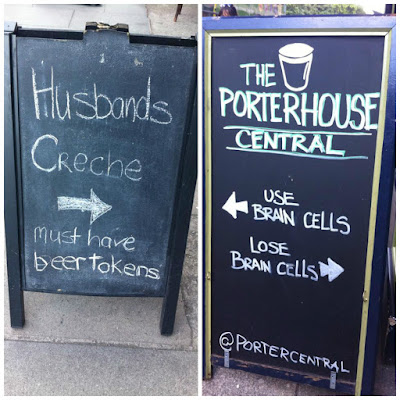 Husbands
Creche
must have
beer tokens
THE
PORTERHOUSE
CENTRAL
USE
BRAIN CELLS
LOSE
BRAIN CELLS
@PORTERCENTRAL